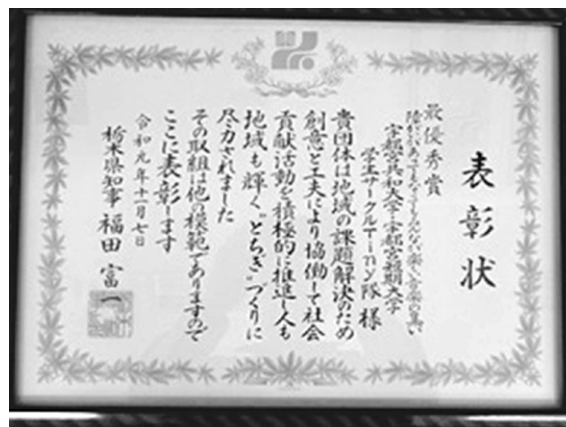 表彰状
最優秀賞
障がいがあってもなくてもみんなが楽しい音楽の集い
宇都宮共和大学・宇都宮短期大学
学生サークルTiny隊 様
貴団体は地域の課題解決のため
創意と工夫により協働して社会
貢献活動を積極的に推進し人も
地域も輝く"とちぎ"づくりに
尽力されました
その取組は他の模範でありますので
ここに表彰します
令和元年十一月七日
栃木県知事 福田富一